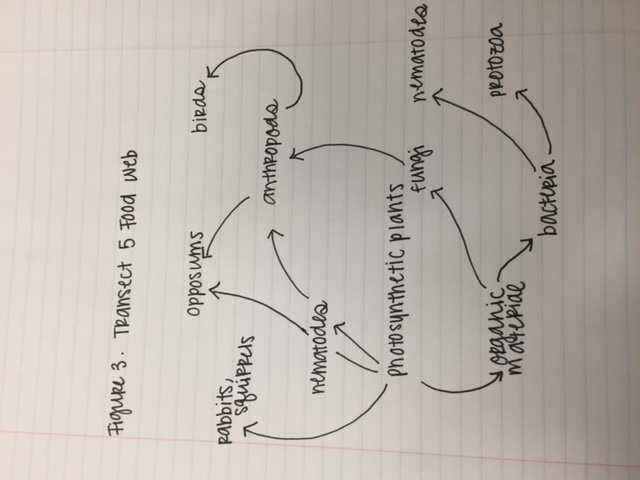 Figure 3. Transect 5 Food Web
rabbits,
squirrels
opposums
birds
nematodes
anthropods
photosynthetic plants
fungi
nematodes
organic
materiae
bacteria
protozoa